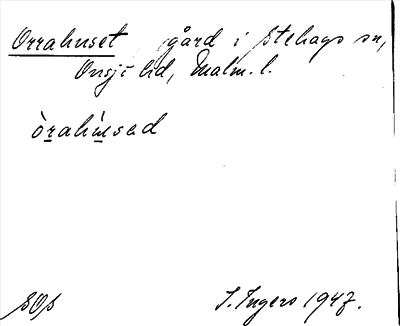 Orrahuset gård i Stehags sn,
Onsjö hd, Malm. l.
òrahùsed
SOs
I. Ingers 1947.